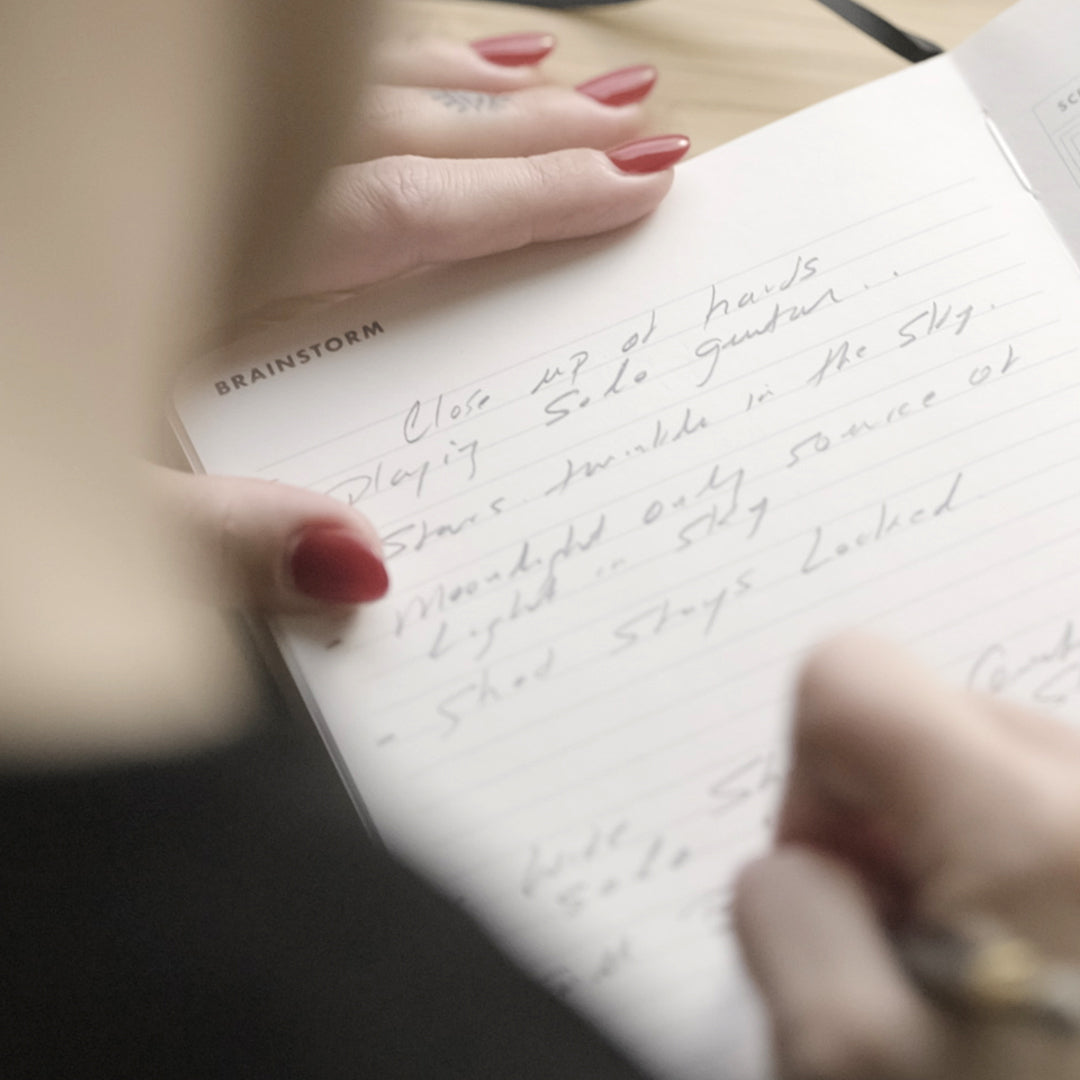 BRAINSTORM
Close up of hands
Playing Solo guitar..
Stars twinkle in the sky.
- Moonlight only source of
Light in sky
- Shed stays Locked
Wide
Solo